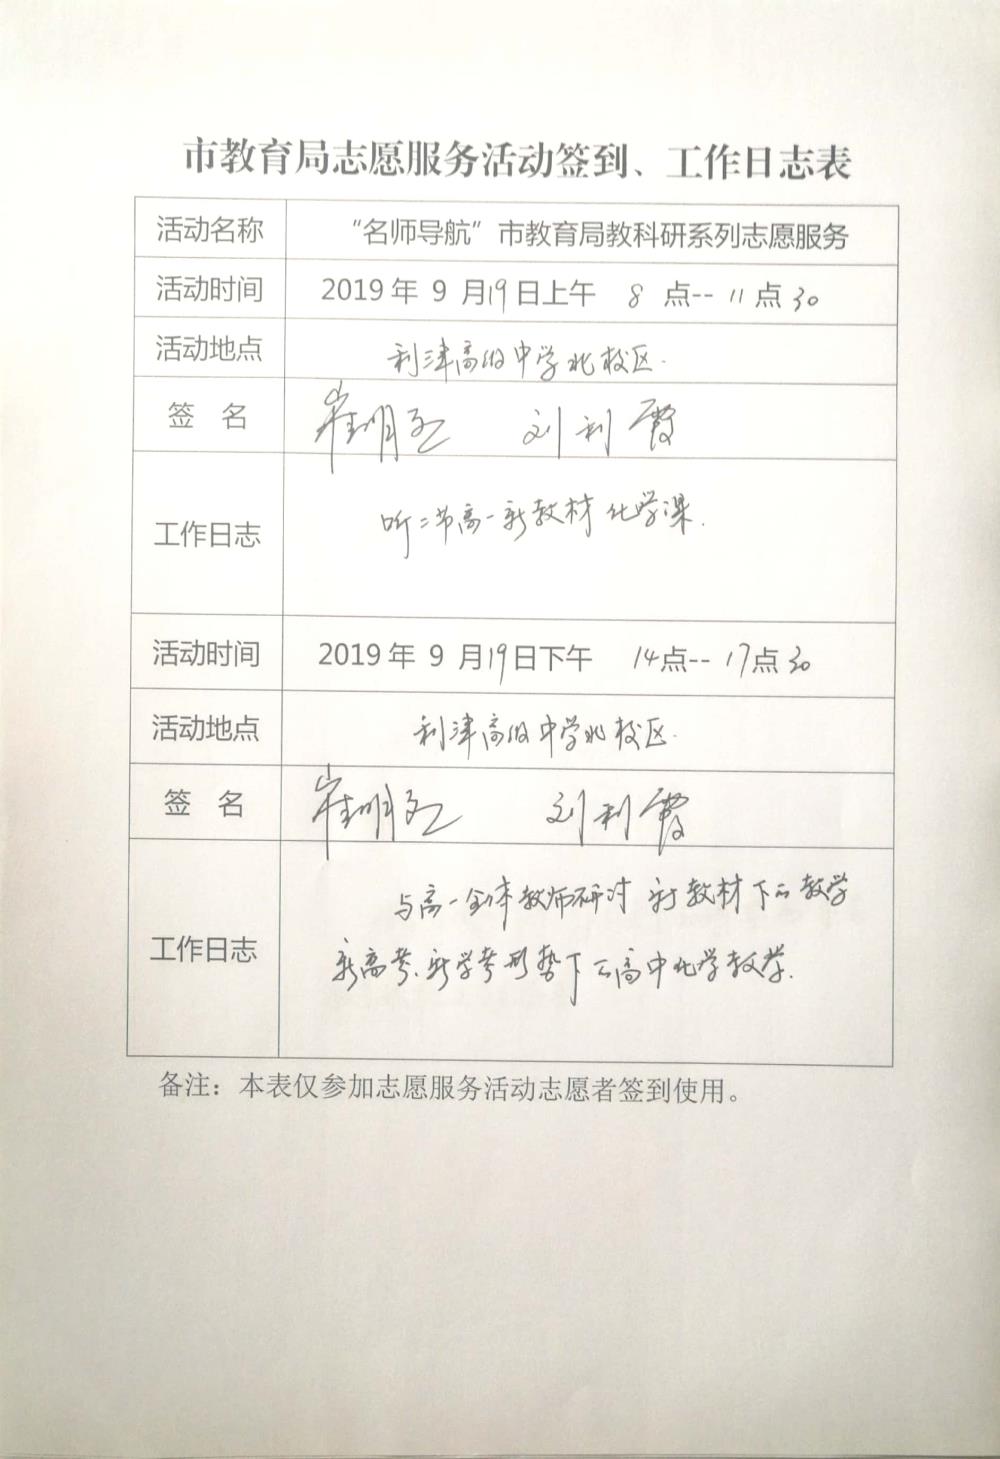 市教育局志愿服务活动签到、工作日志表
活动名称 “名师导航”市教育局教科研系列志愿服务
活动时间 2019年 9 月19日上午 8 点--11点30
活动地点 利津高级中学北校区.
签 名 崔明 刘利霞
工作日志 听二节高一新教材化学课.
活动时间 2019年 9 月19日下午 14点--17点30
活动地点 利津高级中学北校区.
签 名 崔明 刘利霞
工作日志 与高一全体教师研讨 新教材下的教学
新高考、新学考形势下的高中化学教学.
备注：本表仅参加志愿服务活动志愿者签到使用。